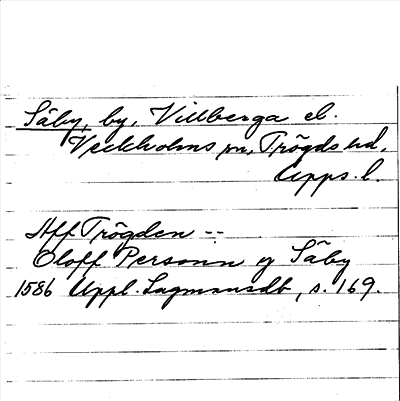 Säby, by, Villberga el.
Veckholms sn, Trögds hd,
Upps. l.
Aff Trögden --
Oloff Personn y Säby
1586 Uppl. Lagmansdb, s. 169.